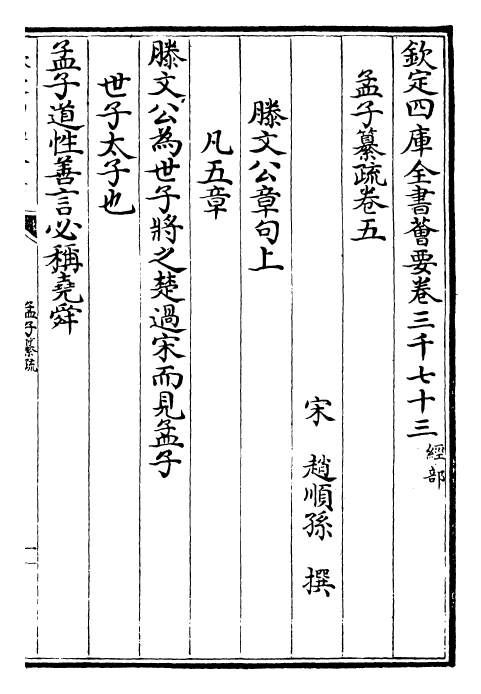 欽定四庫全書薈要卷三千七十三 經部
孟子纂疏卷五
宋 趙順孫 撰
滕文公章句上
凡五章
滕文公為世子將之楚過宋而見孟子
世子太子也
孟子道性善言必稱堯舜
孟子纂疏
一